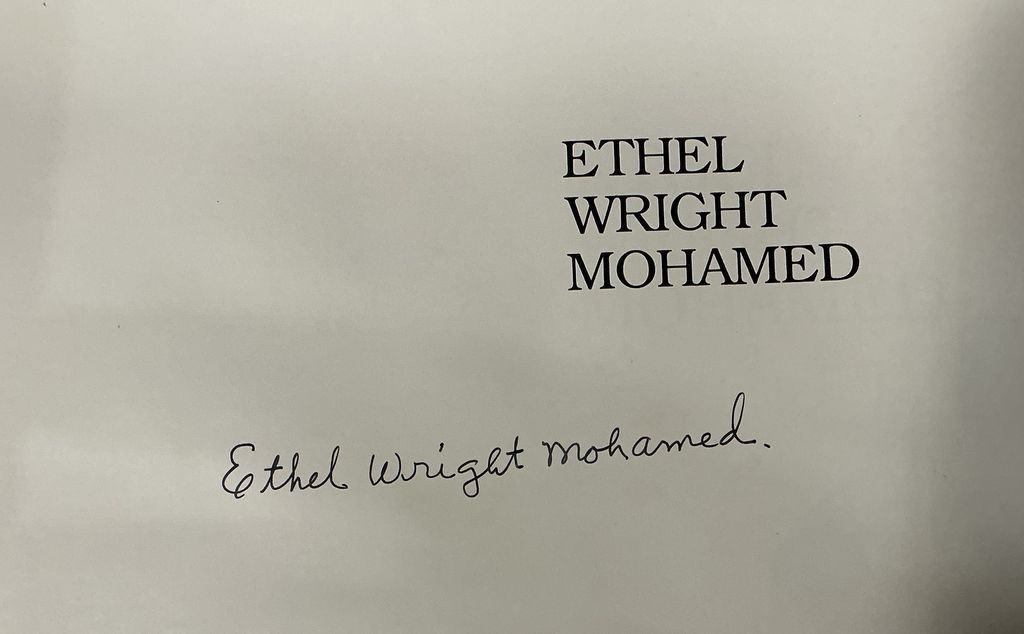 ETHEL
WRIGHT
MOHAMED
Ethel Wright Mohamed.